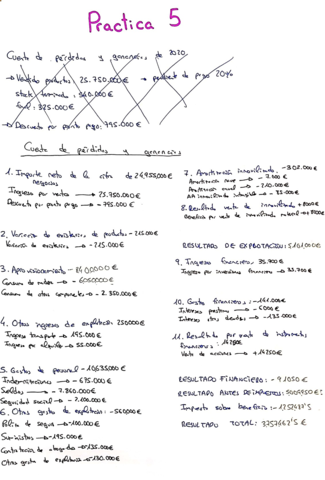 Practica 5
Cuenta de pérdidas y ganancias de 2020
→ Vendido productos: 25.750.000€ → producto de pago 20%
stock terminado: 360.000€
final: 325.000€
→ Descuento por pronto pago: 795.000€
Cuenta de pérdidas y ganancias
1. Importe neto de la cifra de 24955.000€
negocios
Ingresos por ventas → 25.750.000€
Descuento por pronto pago → -795.000€
2. Variación de existencias de productos -215.000€
Variación de existencias → -215.000€
3. Aprovisionamiento
Consumo de otros
4. Otros ingresos de explotación 250000€
Ingresos transporte → 195.000€
Ingresos por alquiler → 55.000€
5. Gastos de personal -10635000€
Indemnizaciones → -675.000€
Sueldos → -7.860.000€
Seguridad social → -2.100.000€
6. Otros gastos de explotación -560000€
Póliza de seguro → -100.000€
Suministros → -195.000€
→ -135.000€
Otros gastos de explotación → -130.000€
7. Amortización inmovilizado
Amortización
Amortización
AA inmovilizado intangible
8. Resultado venta de inmovilizado +8000€
Beneficio por venta de inmovilizado material → 8000€
RESULTADO DE EXPLOTACIÓN: 5101000€
9. Ingresos financieros 35.900€
Ingresos por inversiones financieras
10. Gastos financieros -141.000€
Intereses prestamo → -6000€
Intereses otras deudas → -135.000€
11. Resultado por venta de instrumentos
financieros: 14250€
Venta de acciones → +14250€
RESULTADO FINANCIERO:
RESULTADO ANTES DE IMPUESTOS:
Impuesto sobre beneficio:
RESULTADO TOTAL: 3757462'5